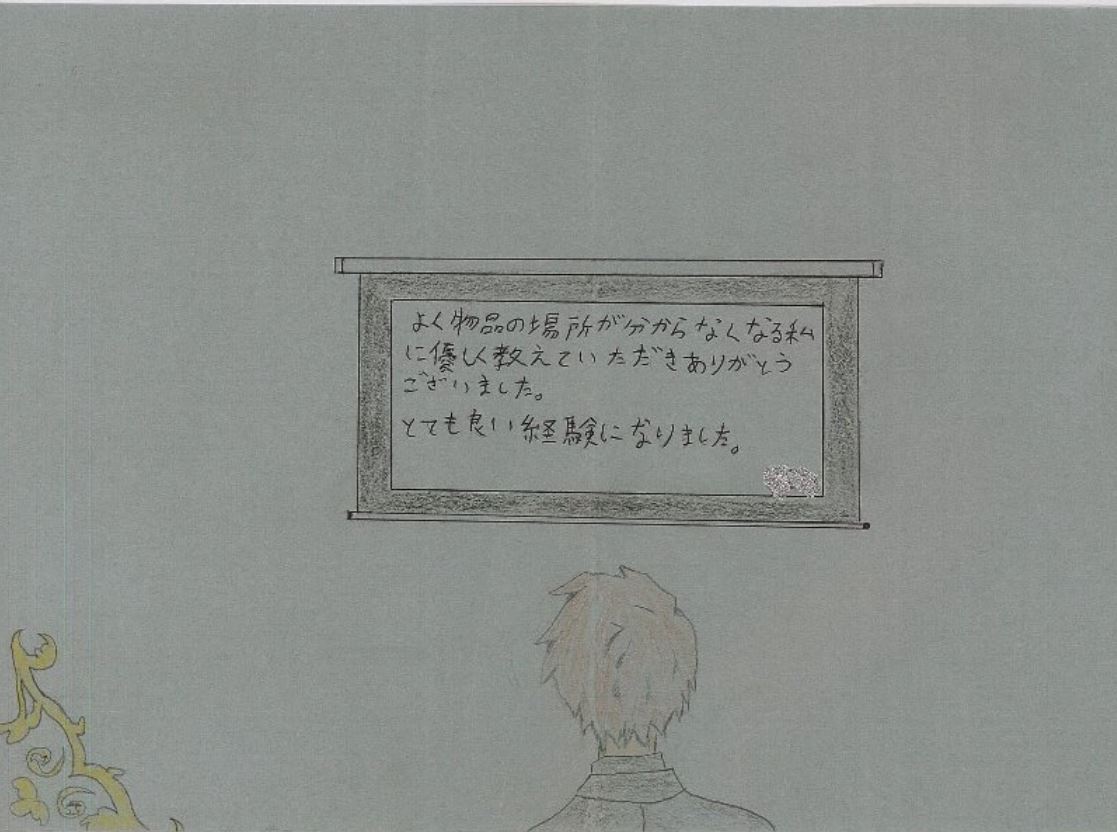 よく物品の場所が分からなくなる私
に優しく教えていただきありがとう
ございました。
とても良い経験になりました。